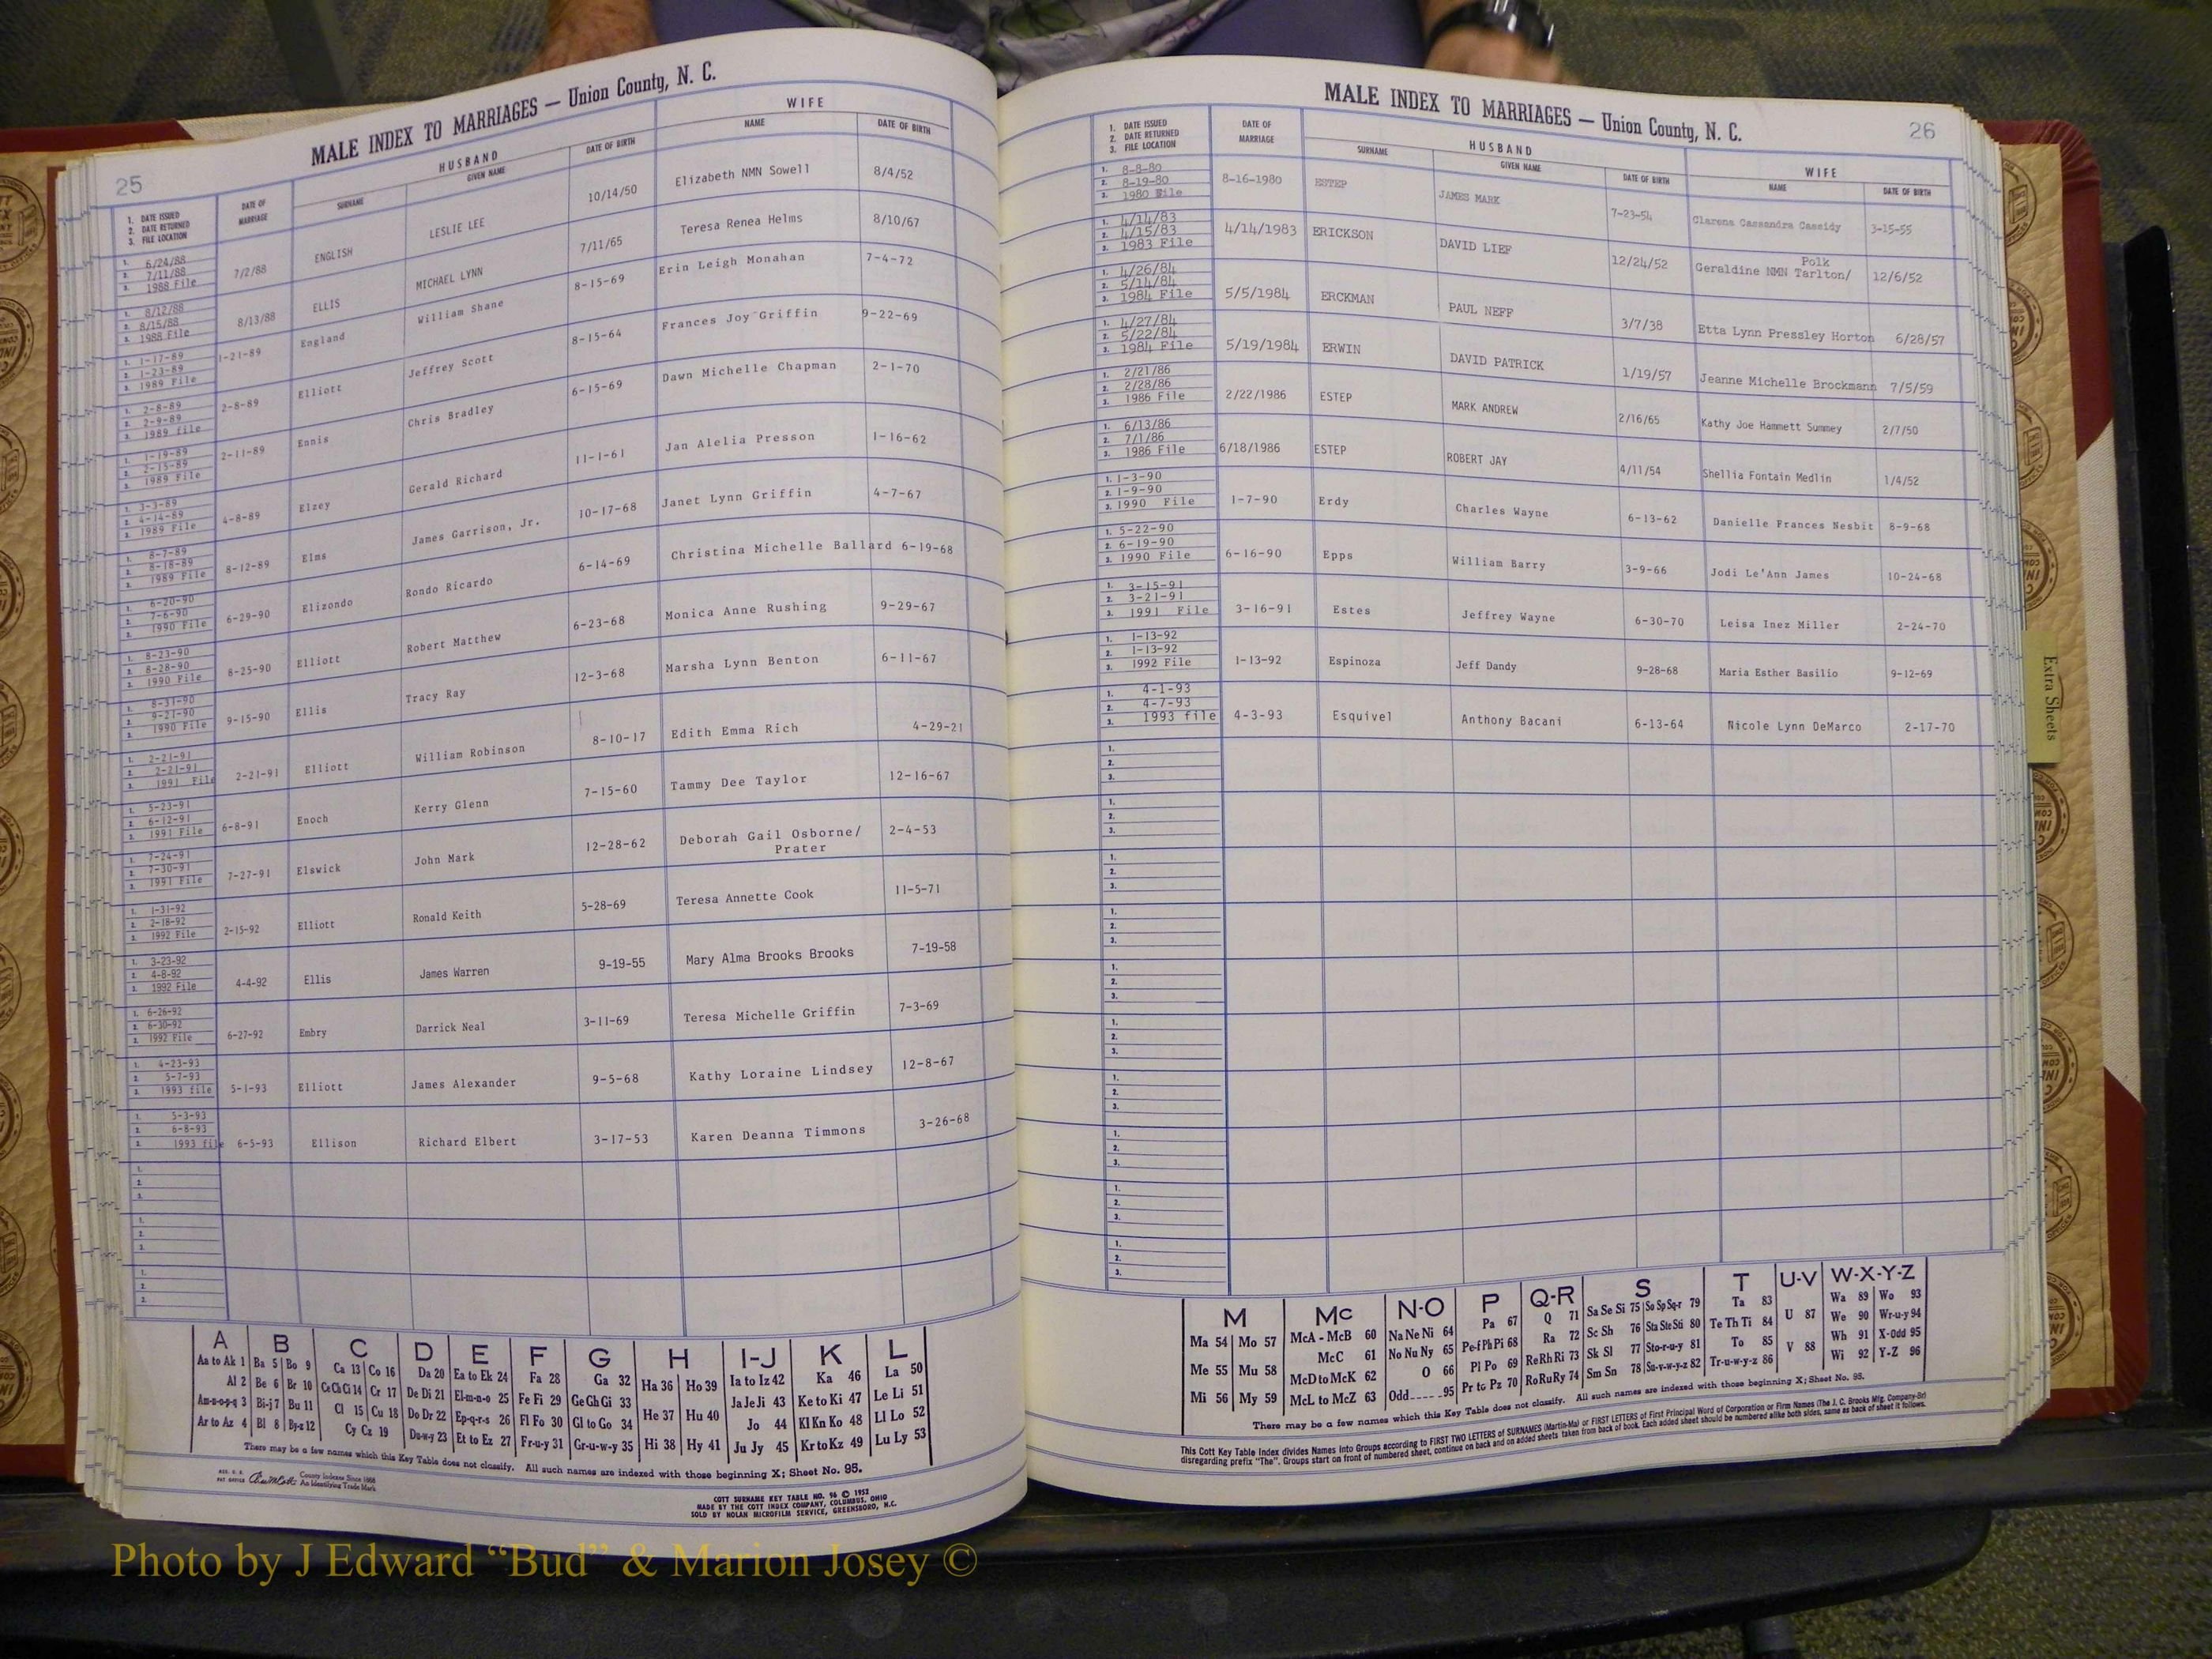 MALE INDEX TO MARRIAGES — Union County, N. C.
25
1. DATE ISSUED
2. DATE RETURNED
3. FILE LOCATION
DATE OF MARRIAGE
HUSBAND
SURNAME GIVEN NAME DATE OF BIRTH
WIFE
NAME DATE OF BIRTH
1. 6/24/88
2. 7/11/88
3. 1988 File
7/2/88 ENGLISH LESLIE LEE 10/14/50 Elizabeth NMN Sowell 8/4/52
1. 8/12/88
2. 8/15/88
3. 1988 File
8/13/88 ELLIS MICHAEL LYNN 7/11/65 Teresa Renea Helms 8/10/67
1. 1-17-89
2. 1-23-89
3. 1989 File
1-21-89 England William Shane 8-15-69 Erin Leigh Monahan 7-4-72
1. 2-8-89
2. 2-9-89
3. 1989 file
2-8-89 Elliott Jeffrey Scott 8-15-64 Frances Joy Griffin 9-22-69
1. 1-19-89
2. 2-15-89
3. 1989 File
2-11-89 Ennis Chris Bradley 6-15-69 Dawn Michelle Chapman 2-1-70
1. 3-3-89
2. 4-14-89
3. 1989 File
4-8-89 Elzey Gerald Richard 11-1-61 Jan Alelia Presson 1-16-62
1. 8-7-89
2. 8-18-89
3. 1989 File
8-12-89 Elms James Garrison, Jr. 10-17-68 Janet Lynn Griffin 4-7-67
1. 6-20-90
2. 7-6-90
3. 1990 File
6-29-90 Elizondo Rondo Ricardo 6-14-69 Christina Michelle Ballard 6-19-68
1. 8-23-90
2. 8-28-90
3. 1990 File
8-25-90 Elliott Robert Matthew 6-23-68 Monica Anne Rushing 9-29-67
1. 8-31-90
2. 9-21-90
3. 1990 File
9-15-90 Ellis Tracy Ray 12-3-68 Marsha Lynn Benton 6-11-67
1. 2-21-91
2. 2-21-91
3. 1991 File
2-21-91 Elliott William Robinson 8-10-17 Edith Emma Rich 4-29-21
1. 5-23-91
2. 6-12-91
3. 1991 File
6-8-91 Enoch Kerry Glenn 7-15-60 Tammy Dee Taylor 12-16-67
1. 7-24-91
2. 7-30-91
3. 1991 File
7-27-91 Elswick John Mark 12-28-62 Deborah Gail Osborne/ 2-4-53
Prater
1. 1-31-92
2. 2-18-92
3. 1992 File
2-15-92 Elliott Ronald Keith 5-28-69 Teresa Annette Cook 11-5-71
1. 3-23-92
2. 4-8-92
3. 1992 File
4-4-92 Ellis James Warren 9-19-55 Mary Alma Brooks Brooks 7-19-58
1. 6-26-92
2. 6-30-92
3. 1992 File
6-27-92 Embry Darrick Neal 3-11-69 Teresa Michelle Griffin 7-3-69
1. 4-23-93
2. 5-7-93
3. 1993 file
5-1-93 Elliott James Alexander 9-5-68 Kathy Loraine Lindsey 12-8-67
1. 5-3-93
2. 6-8-93
3. 1993 file
6-5-93 Ellison Richard Elbert 3-17-53 Karen Deanna Timmons 3-26-68
1.
2.
3.
1.
2.
3.
1.
2.
3.
A B C D E F G H I-J K L
Aa to Ak 1 Ba 5 Bo 9 Ca 13 Co 16 Da 20 Ea to Ek 24 Fa 28 Ga 32 Ha 36 Ho 39 Ia to Iz 42 Ka 46 La 50
Al 2 Be 6 Br 10 Ce Ch Ci 14 Cr 17 De Di 21 El-m-n-o 25 Fe Fi 29 Ge Gh Gi 33 He 37 Hu 40 Ja Je Ji 43 Ke to Ki 47 Le Li 51
Am-n-o-p-q 3 Bi-j 7 Bu 11 Cl 15 Cu 18 Do Dr 22 Ep-q-r-s 26 Fl Fo 30 Gl to Go 34 Hi 38 Hy 41 Jo 44 Kl Kn Ko 48 Ll Lo 52
Ar to Az 4 Bl 8 By-z 12 Cy Cz 19 Du-w-y 23 Et to Ez 27 Fr-u-y 31 Gr-u-w-y 35 Ju Jy 45 Kr to Kz 49 Lu Ly 53
There may be a few names which this Key Table does not classify. All such names are indexed with those beginning X; Sheet No. 95.
County Indexes Since 1888
An Identifying Trade Mark
COTT SURNAME KEY TABLE NO. 96 © 1952
MADE BY THE COTT INDEX COMPANY, COLUMBUS, OHIO
SOLD BY NOLAN MICROFILM SERVICE, GREENSBORO, N.C.
MALE INDEX TO MARRIAGES — Union County, N. C.
26
1. DATE ISSUED
2. DATE RETURNED
3. FILE LOCATION
DATE OF MARRIAGE
HUSBAND
SURNAME GIVEN NAME DATE OF BIRTH
WIFE
NAME DATE OF BIRTH
1. 8-8-80
2. 8-19-80
3. 1980 File
8-16-1980 ESTEP JAMES MARK 7-23-54 Clarena Cassandra Cassidy 3-15-55
1. 4/14/83
2. 4/15/83
3. 1983 File
4/14/1983 ERICKSON DAVID LIEF 12/24/52 Geraldine NMN Tarlton/ Polk 12/6/52
1. 4/26/84
2. 5/14/84
3. 1984 File
5/5/1984 ERCKMAN PAUL NEFF 3/7/38 Etta Lynn Pressley Horton 6/28/57
1. 4/27/84
2. 5/22/84
3. 1984 File
5/19/1984 ERWIN DAVID PATRICK 1/19/57 Jeanne Michelle Brockmann 7/5/59
1. 2/21/86
2. 2/28/86
3. 1986 File
2/22/1986 ESTEP MARK ANDREW 2/16/65 Kathy Joe Hammett Summey 2/7/50
1. 6/13/86
2. 7/1/86
3. 1986 File
6/18/1986 ESTEP ROBERT JAY 4/11/54 Shellia Fontain Medlin 1/4/52
1. 1-3-90
2. 1-9-90
3. 1990 File
1-7-90 Erdy Charles Wayne 6-13-62 Danielle Frances Nesbit 8-9-68
1. 5-22-90
2. 6-19-90
3. 1990 File
6-16-90 Epps William Barry 3-9-66 Jodi Le'Ann James 10-24-68
1. 3-15-91
2. 3-21-91
3. 1991 File
3-16-91 Estes Jeffrey Wayne 6-30-70 Leisa Inez Miller 2-24-70
1. 1-13-92
2. 1-13-92
3. 1992 File
1-13-92 Espinoza Jeff Dandy 9-28-68 Maria Esther Basilio 9-12-69
1. 4-1-93
2. 4-7-93
3. 1993 file
4-3-93 Esquivel Anthony Bacani 6-13-64 Nicole Lynn DeMarco 2-17-70
1.
2.
3.
1.
2.
3.
1.
2.
3.
1.
2.
3.
1.
2.
3.
1.
2.
3.
1.
2.
3.
1.
2.
3.
1.
2.
3.
1.
2.
3.
M Mc N-O P Q-R S T U-V W-X-Y-Z
Ma 54 Mo 57 McA - McB 60 Na Ne Ni 64 Pa 67 Q 71 Sa Se Si 75 So Sp Sq-r 79 Ta 83 U 87 Wa 89 Wo 93
Me 55 Mu 58 McC 61 No Nu Ny 65 Pe-f Ph Pi 68 Ra 72 Sc Sh 76 Sta Ste Sti 80 Te Th Ti 84 V 88 We 90 Wr-u-y 94
Mi 56 My 59 McD to McK 62 O 66 Pl Po 69 Re Rh Ri 73 Sk Sl 77 Sto-r-u-y 81 To 85 Wh 91 X-Odd 95
McL to McZ 63 Odd 95 Pr to Pz 70 Ro Ru Ry 74 Sm Sn 78 Su-v-w-y-z 82 Tr-u-w-y-z 86 Wi 92 Y-Z 96
There may be a few names which this Key Table does not classify. All such names are indexed with those beginning X; Sheet No. 95.
This Cott Key Table Index divides Names into Groups according to FIRST TWO LETTERS of SURNAMES (Martin-Ma) or FIRST LETTERS of First Principal Word of Corporation or Firm Names (The J. C. Brooks Mfg. Company-Br)
disregarding prefix "The". Groups start on front of numbered sheet, continue on back and on added sheets taken from back of book. Each added sheet should be numbered alike both sides, same as back of sheet it follows.
Extra Sheets
Photo by J Edward “Bud” & Marion Josey ©